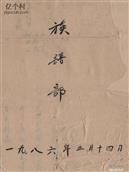 亿个村
族谱部
一九八六年三月十四日